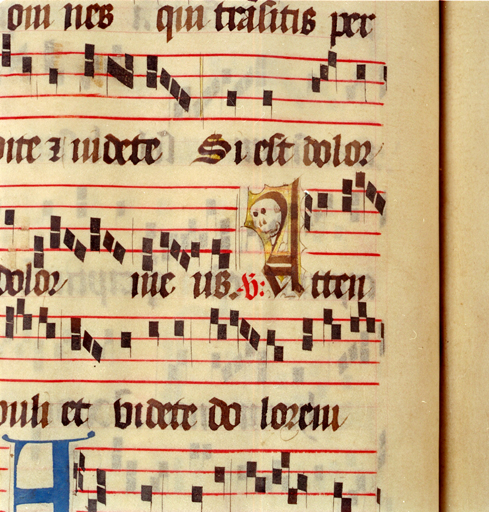 om nes qui trãsitis per
ite ⁊ uidete Si est dolor
dolor me us. ℣: Atten
puli et videte do lorem
A